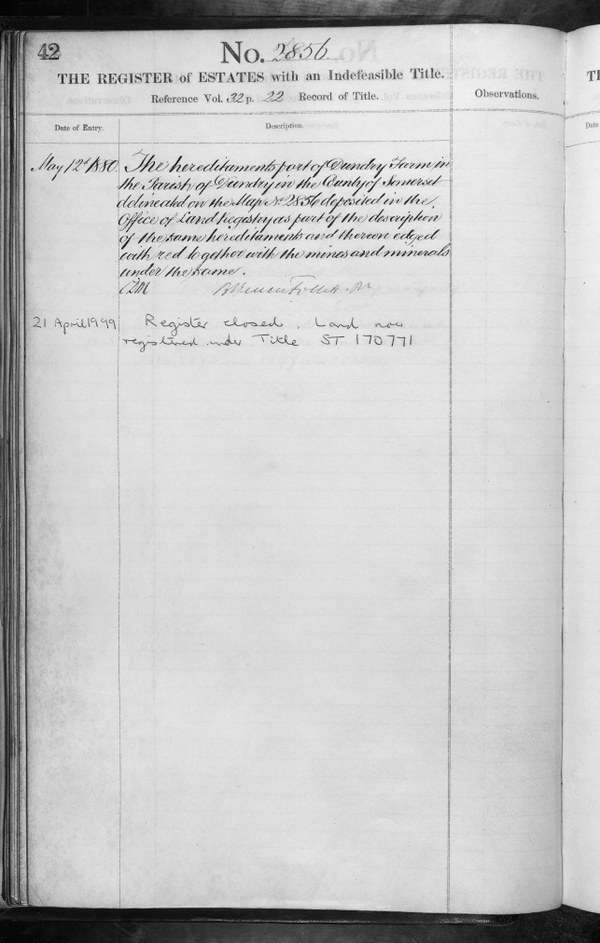 42
No. 2856
THE REGISTER of ESTATES with an Indefeasible Title.
Reference Vol. 32 p. 22 Record of Title.
Observations.
Date of Entry.
Description.
May 12th 1880. The hereditaments part of Dundry Farm in
the Parish of Dundry in the County of Somerset
delineated on the Map No 2856 deposited in the
Office of Land Registry as part of the description
of the same hereditaments and thereon edged
with red together with the mines and minerals
under the same.
21 April 1999 Register closed. Land now
registered under Title ST 170771